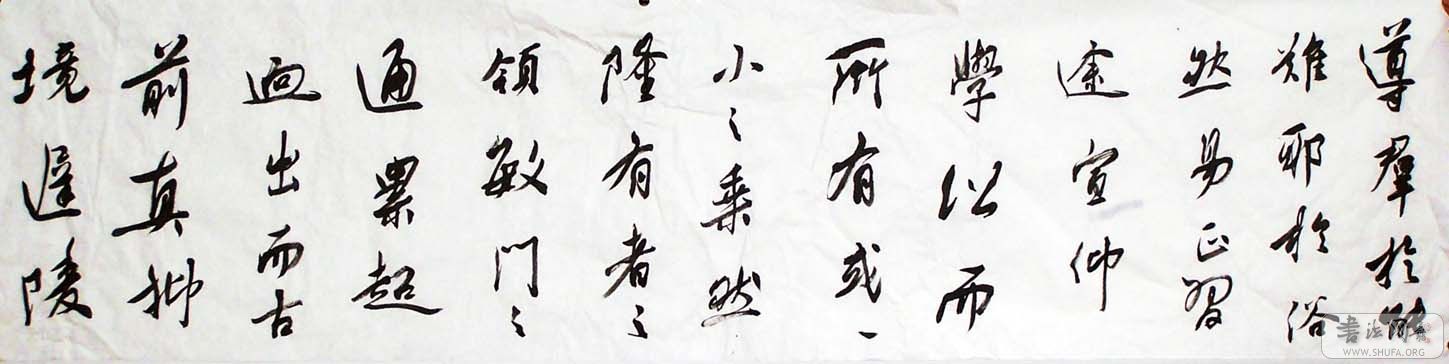 導羣於
難耶於俗
然易正習
途宣仰
學沿而
所有或一
小之乘然
隆有者之
領敏門之
通累超
迥出而古
前真抑
境遲陵
书法网
WWW.SHUFA.ORG